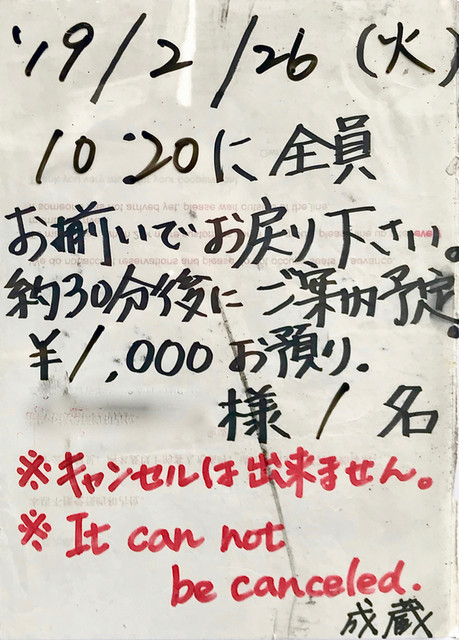 '19/2/26 (火)
10:20に全員
お揃いでお戻り下さい。
約30分後にご案内予定。
¥1,000お預り。
様 1 名
※キャンセルは出来ません。
※It can not
be canceled.
成蔵